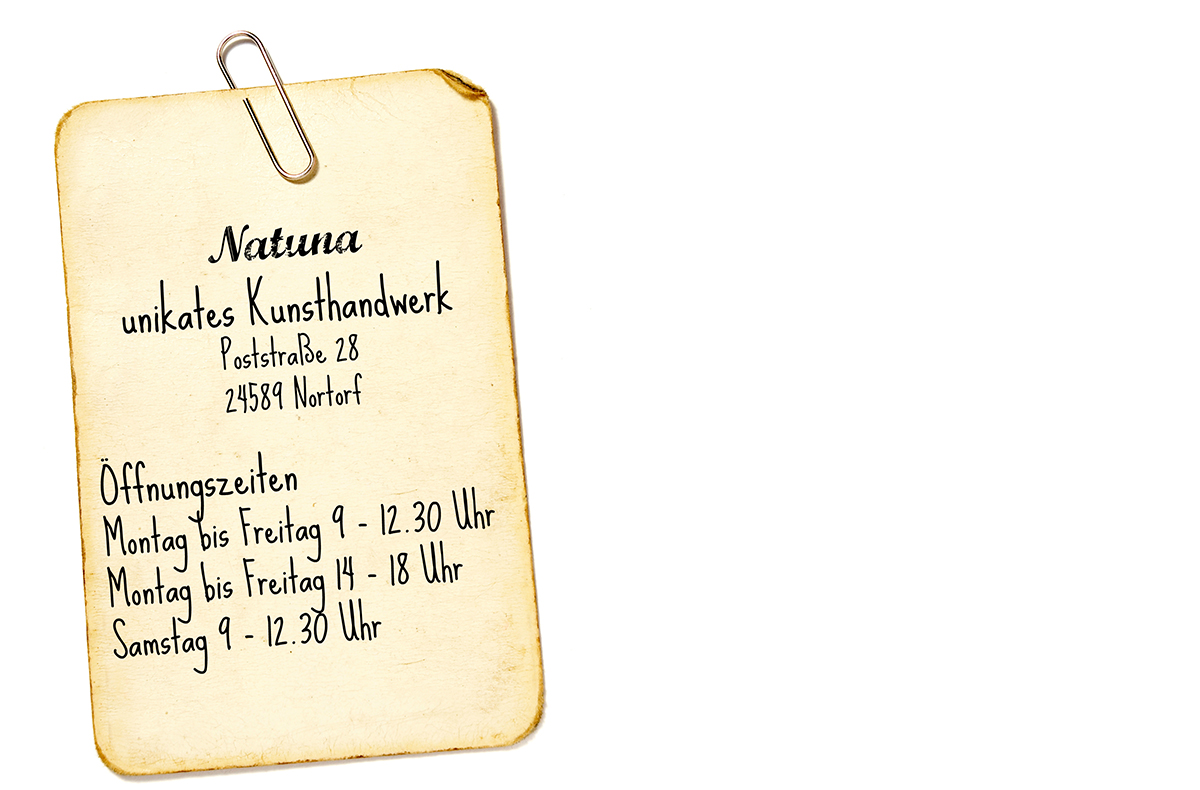 Natuna
unikates Kunsthandwerk
Poststraße 28
24589 Nortorf
Öffnungszeiten
Montag bis Freitag 9 - 12.30 Uhr
Montag bis Freitag 14 - 18 Uhr
Samstag 9 - 12.30 Uhr